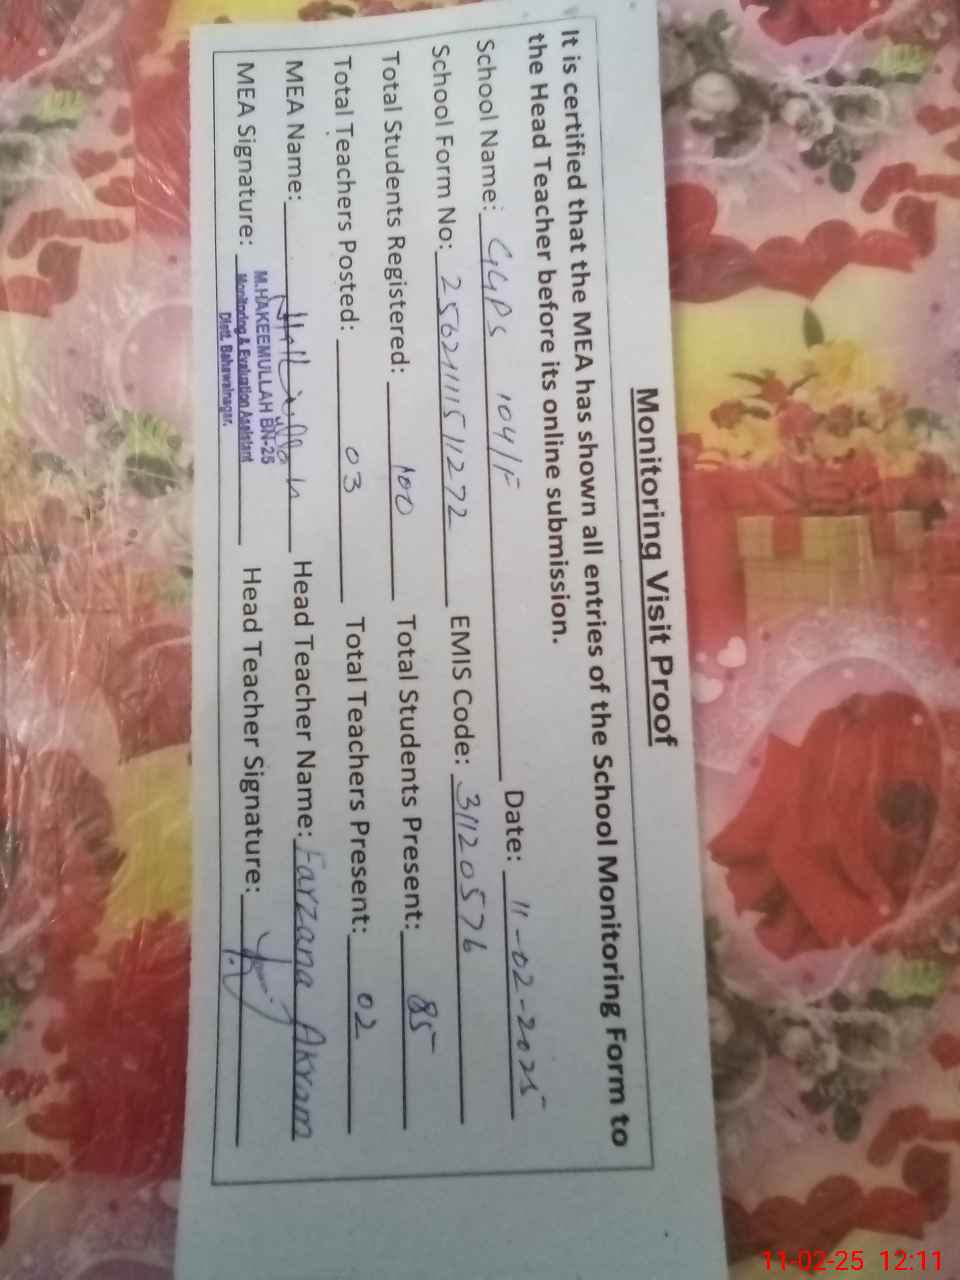 Monitoring Visit Proof
It is certified that the MEA has shown all entries of the School Monitoring Form to
the Head Teacher before its online submission.
School Name: GGPS 104/F Date: 11-02-2025
School Form No: EMIS Code: 31120576
Total Students Registered: 100 Total Students Present: 85
Total Teachers Posted: 03 Total Teachers Present: 02
MEA Name: Head Teacher Name: Farzana Akram
MEA Signature: Head Teacher Signature:
M.HAKEEMULLAH BN-25
Monitoring & Evaluation Assistant
Distt. Bahawalnagar.
11-02-25 12:11